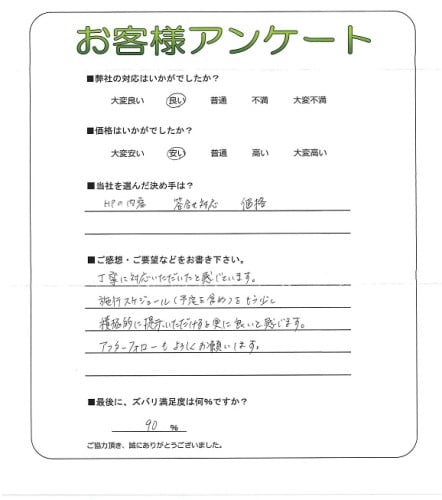 お客様アンケート
■弊社の対応はいかがでしたか？
大変良い 良い 普通 不満 大変不満
■価格はいかがでしたか？
大変安い 安い 普通 高い 大変高い
■当社を選んだ決め手は？
HPの内容 問合せ対応 価格
■ご感想・ご要望などをお書き下さい。
丁寧に対応いただいたと感じています。
施行スケジュール(予定も含め)をもう少し
積極的に提示いただけると更に良いと感じます。
アフターフォローもよろしくお願いします。
■最後に、ズバリ満足度は何%ですか？
90 %
ご協力頂き、誠にありがとうございました。